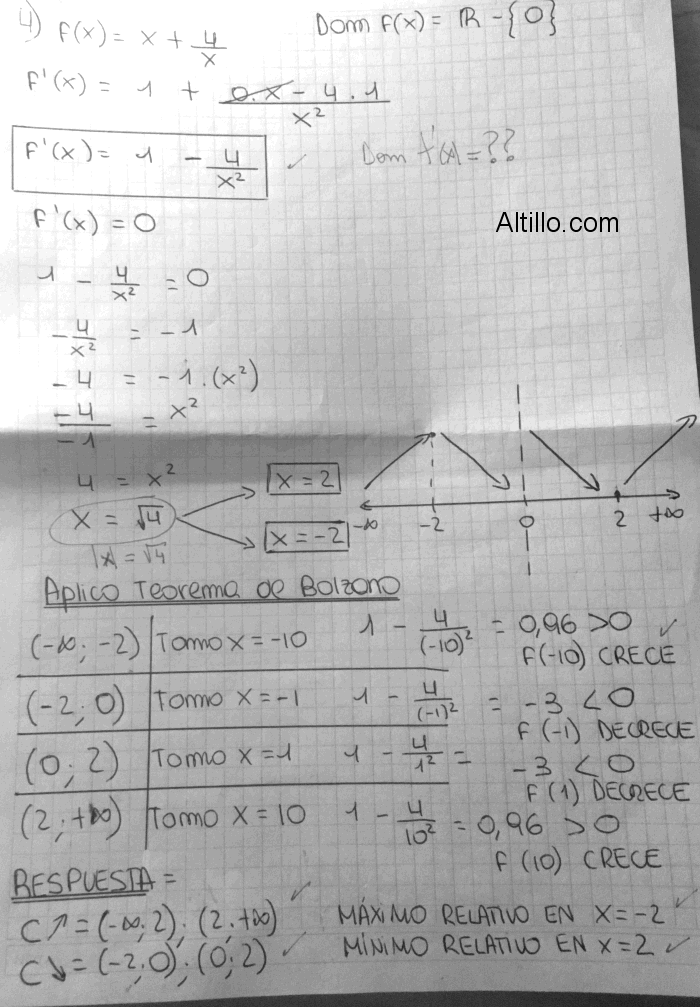 4) F(x) = x + 4/x Dom F(x) = ℝ - {0}
F'(x) = 1 + (0.x - 4.1)/x²
F'(x) = 1 - 4/x² ✓ Dom f'(x) = ??
F'(x) = 0
Altillo.com
1 - 4/x² = 0
-4/x² = -1
-4 = -1.(x²)
-4/-1 = x²
4 = x²
x = √4
x = 2
x = -2
|x| = √4
-∞ -2 0 2 +∞
Aplico Teorema de Bolzono
(-∞; -2) Tomo x = -10 1 - 4/(-10)² = 0,96 > 0 ✓
F(-10) CRECE
(-2; 0) Tomo x = -1 1 - 4/(-1)² = -3 < 0
F(-1) DECRECE
(0; 2) Tomo x = 1 1 - 4/1² = -3 < 0
F(1) DECRECE
(2; +∞) Tomo x = 10 1 - 4/10² = 0,96 > 0
F(10) CRECE
RESPUESTA =
C↗ = (-∞; 2); (2; +∞) ✓ MÁXIMO RELATIVO EN X = -2 ✓
C↘ = (-2; 0); (0; 2) ✓ MÍNIMO RELATIVO EN X = 2 ✓